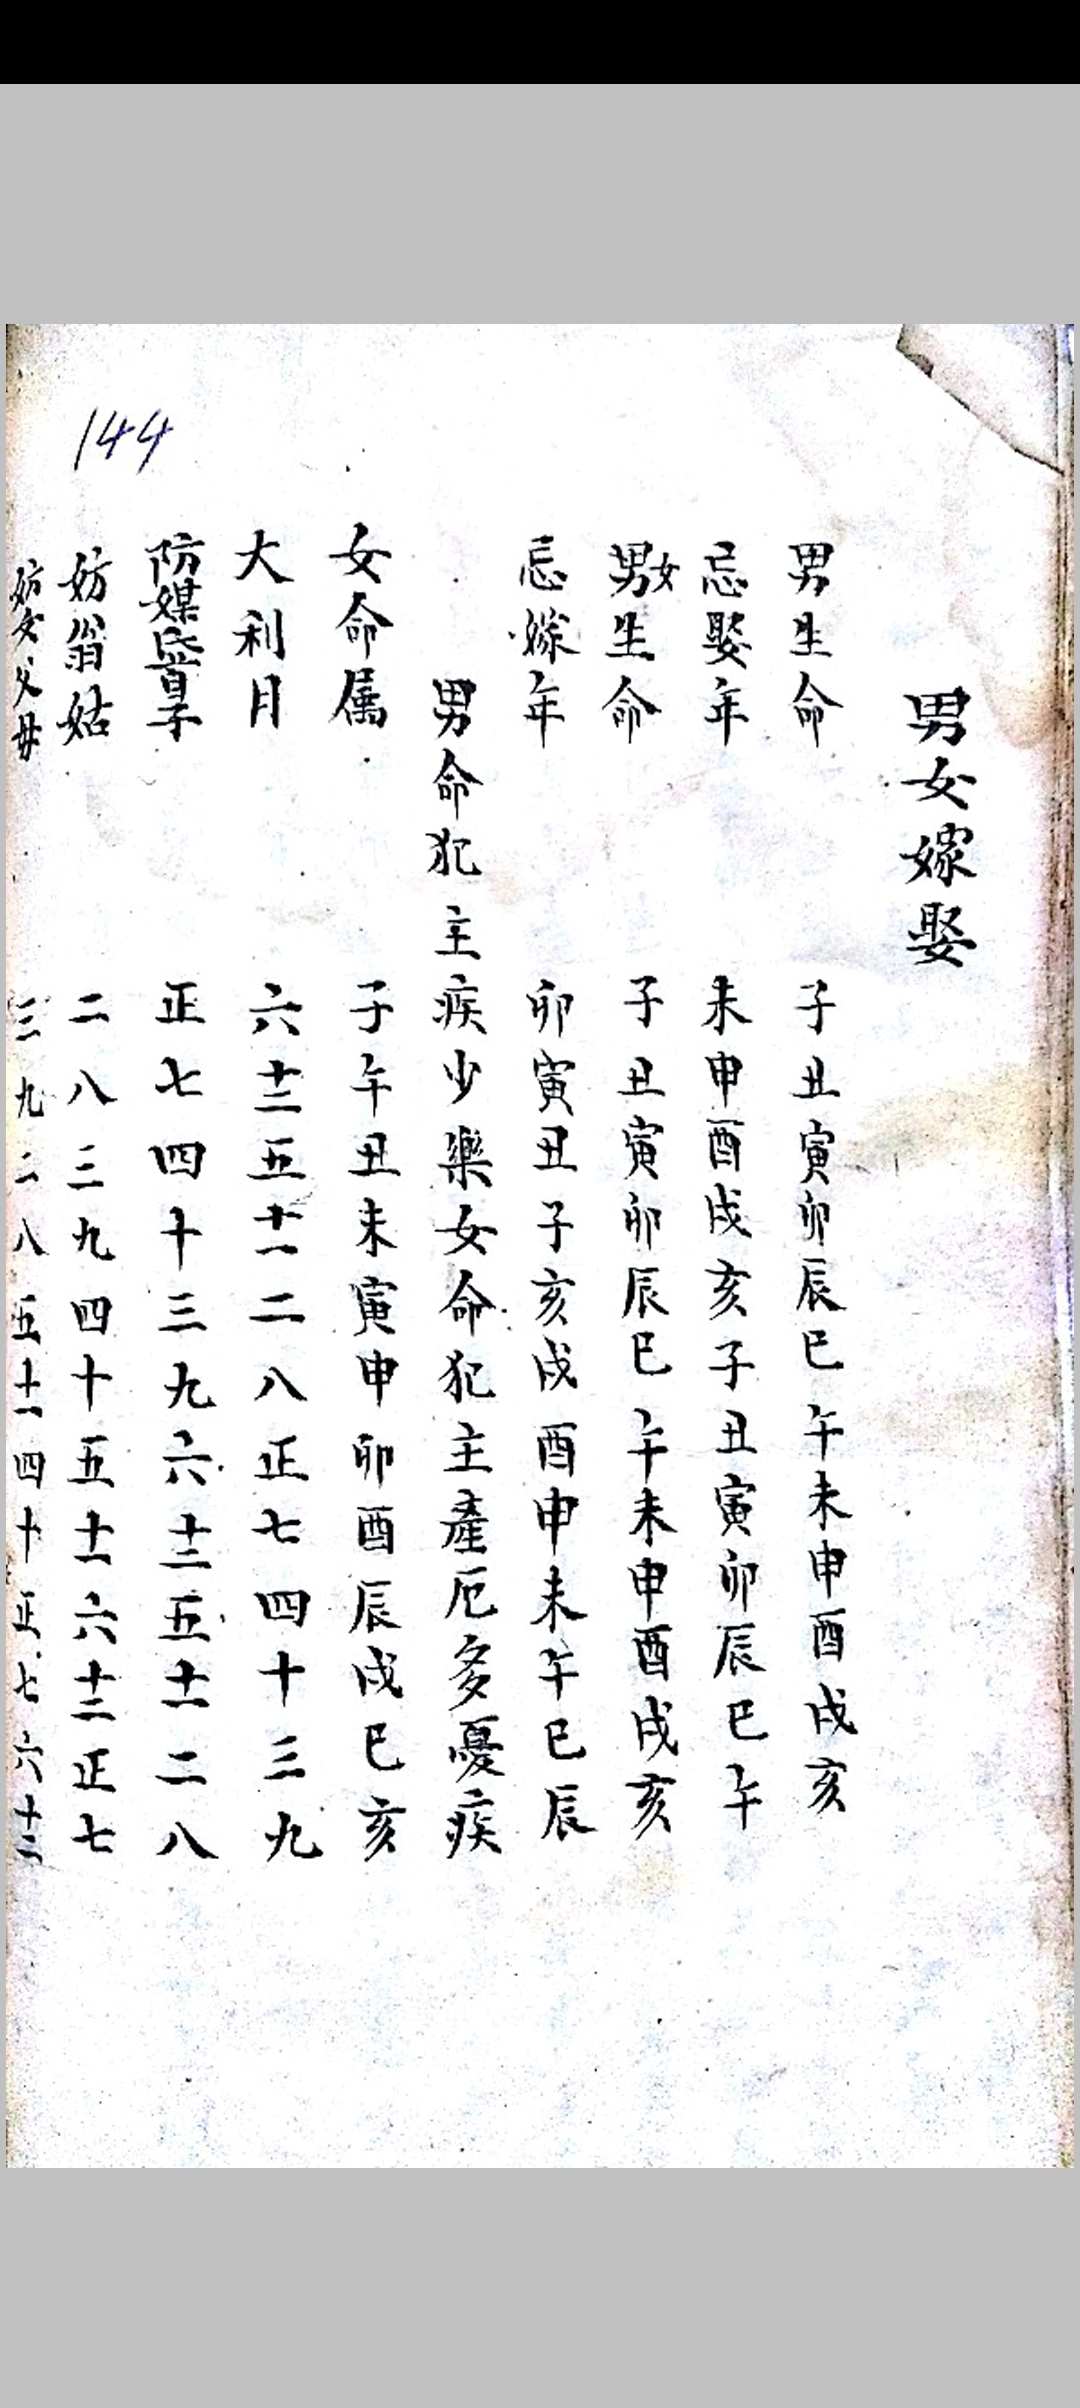 144
男女嫁娶
男生命 子丑寅卯辰巳午未申酉戌亥
忌娶年 未申酉戌亥子丑寅卯辰巳午
男女生命 子丑寅卯辰巳午未申酉戌亥
忌嫁年 卯寅丑子亥戌酉申未午巳辰
男命犯主疾少樂女命犯主產厄多憂疾
女命属 子午丑未寅申卯酉辰戌巳亥
大利月 六十二五十一二八正七四十三九
防媒氏首子 正七四十三九六十二五十一二八
妨翁姑 二八三九四十五十一六十二正七
妨女父母 三九二八五十一四十正七六十二